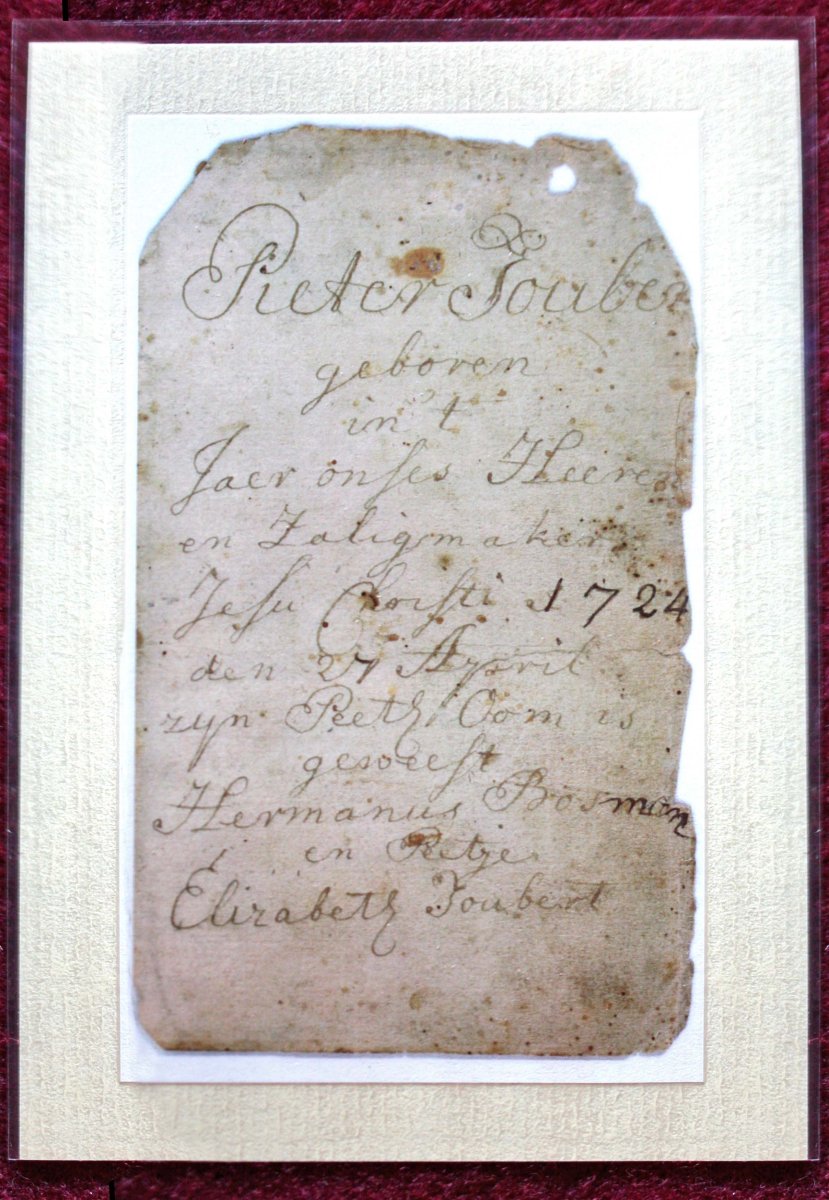 Pieter Jouber
geboren
in't
Jaer onses Heeren
en Zaligmaker
Jesu Christi 1724
den 27 April
zyn Peeth Oom is
geweest
Hermanus Bosman
en Petje
Elizabeth Joubert